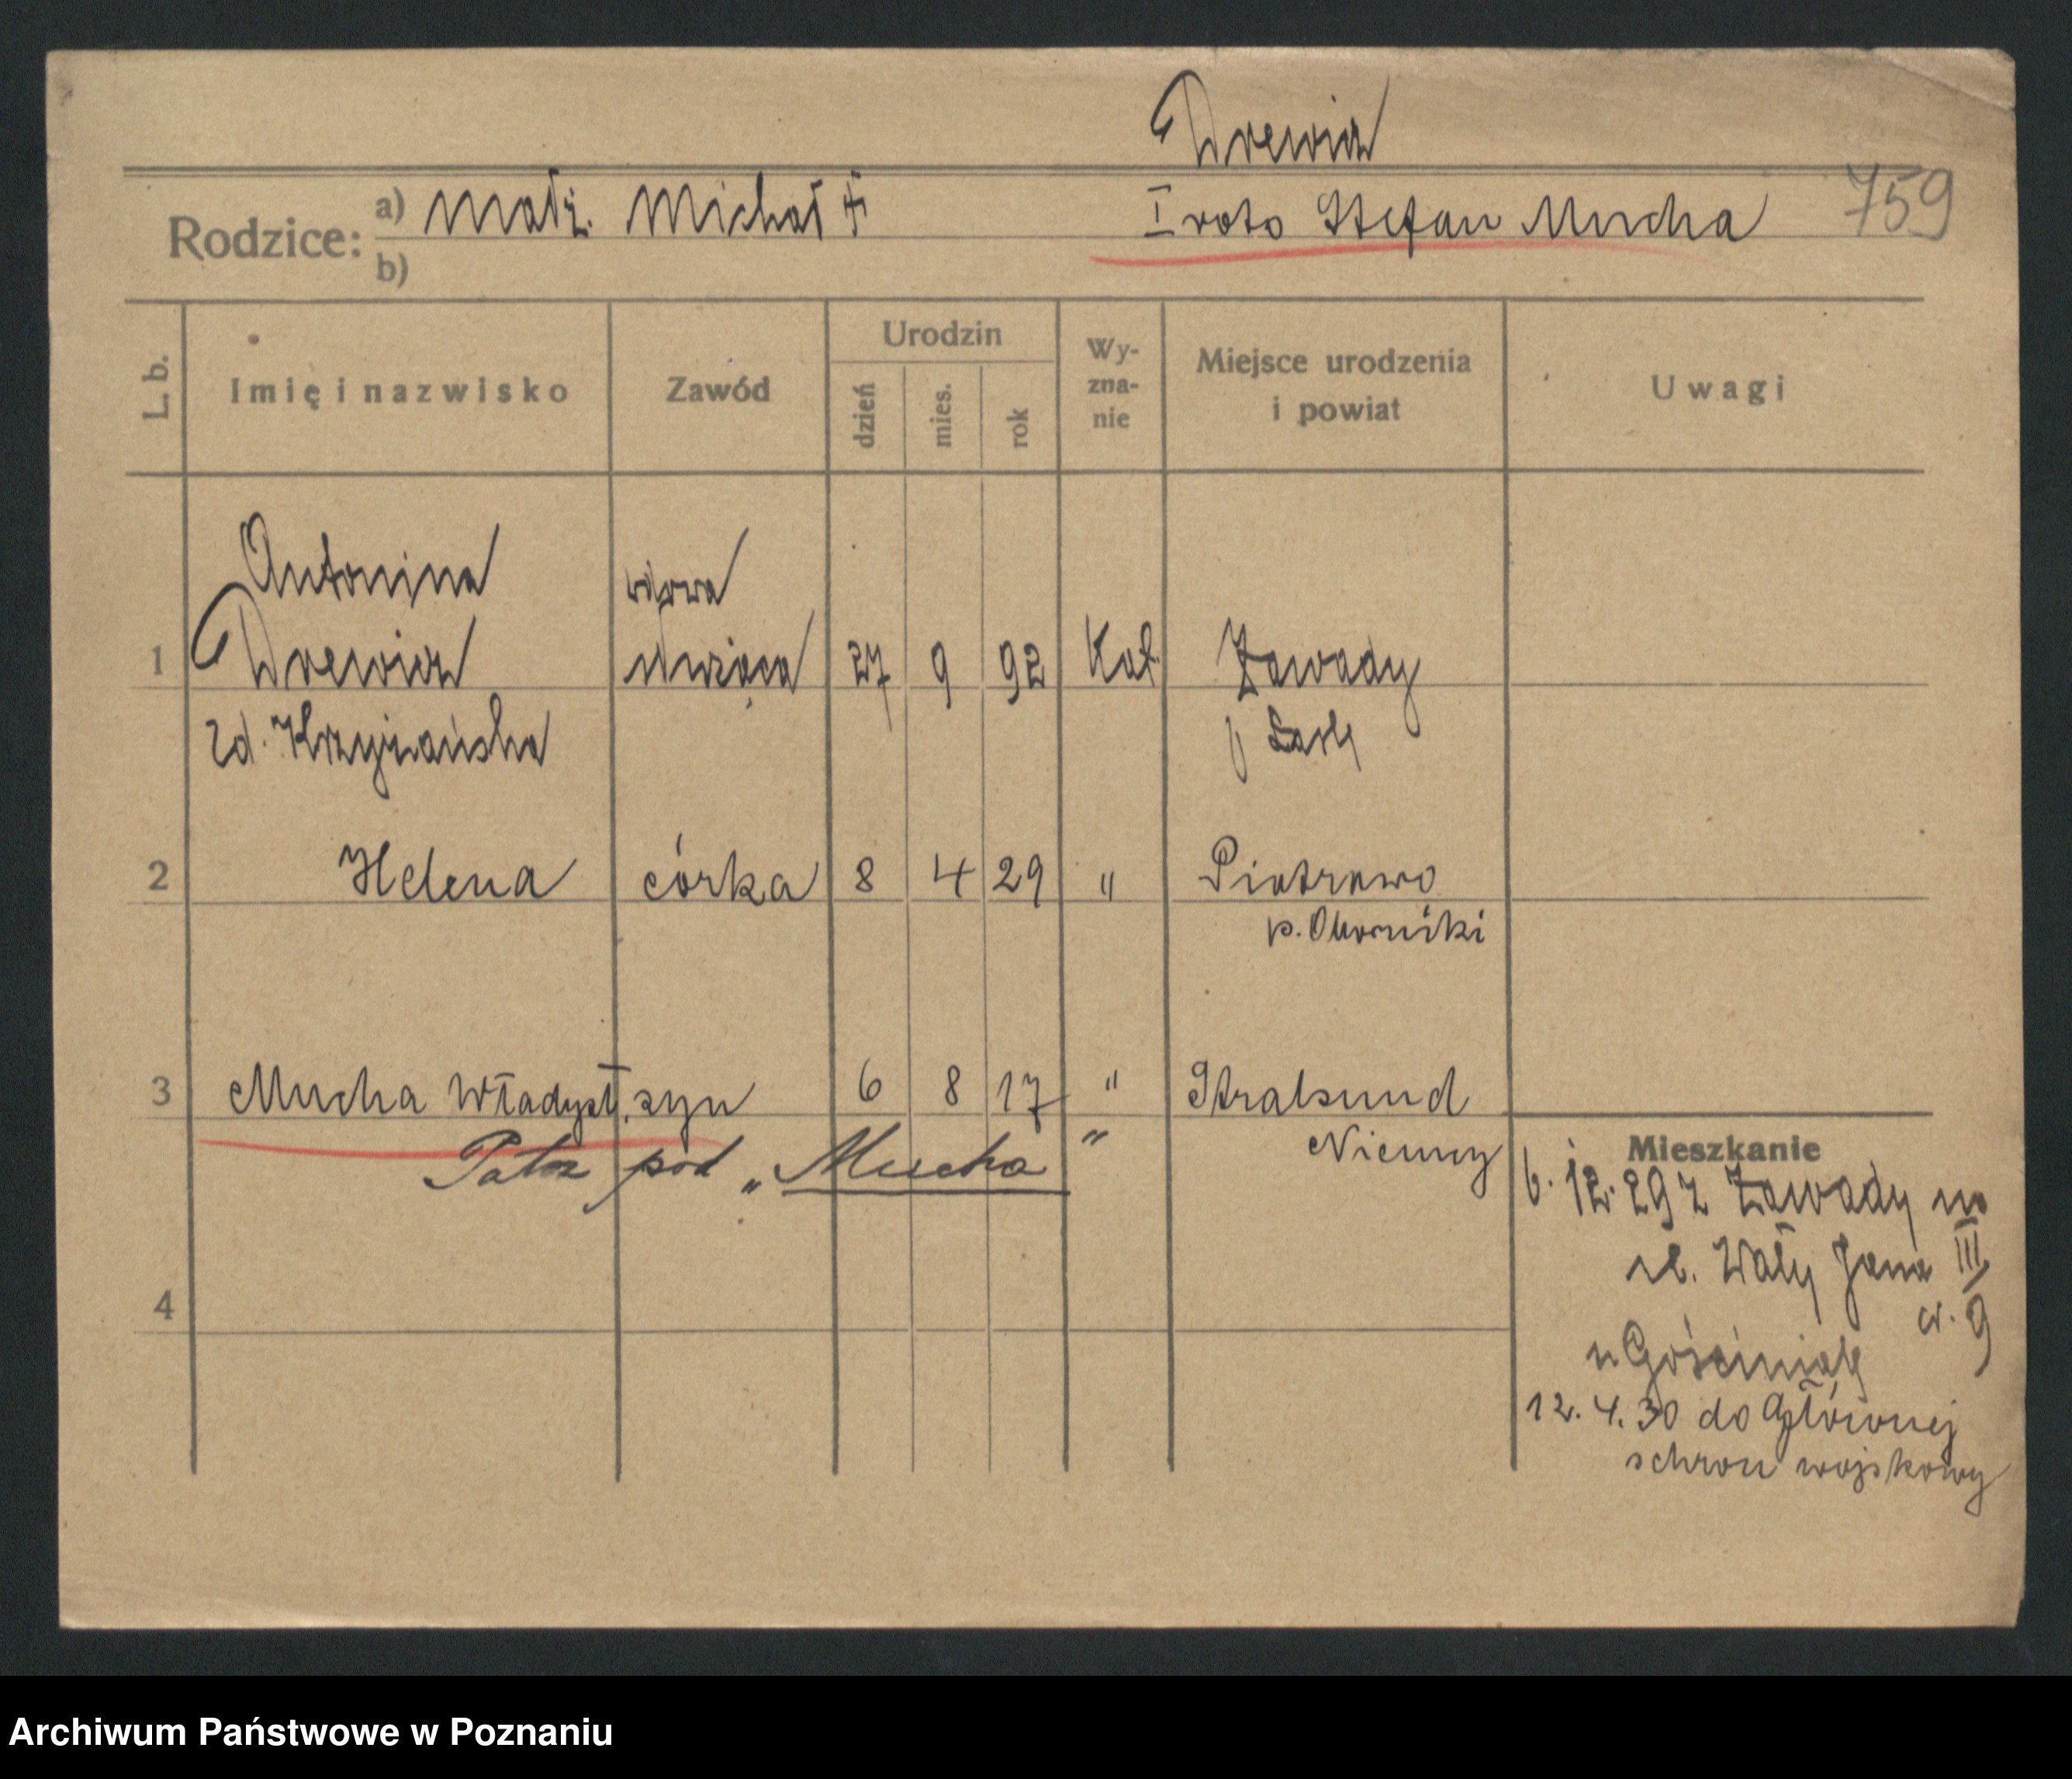 Drewicz
Rodzice: a) Małż. Michał † I voto Stefan Mucha 759
b)
L. b. Imię i nazwisko Zawód Urodzin dzień mies. rok Wyznanie Miejsce urodzenia i powiat Uwagi
Antonina wdowa
1 Drewicz 27 9 92 Kat. Zawady
zd. Krzyżańska
2 Helena córka 8 4 29 " Piotrowo
p. Oborniki
3 Mucha Władysł. syn 6 8 17 " Stralsund
Patrz pod „Mucha" Niemcy
Mieszkanie
6. 12. 29 z Zawady na
ul. Wały Jana III
9
12. 4. 30 do Głównej
schron wojskowy
4
Archiwum Państwowe w Poznaniu